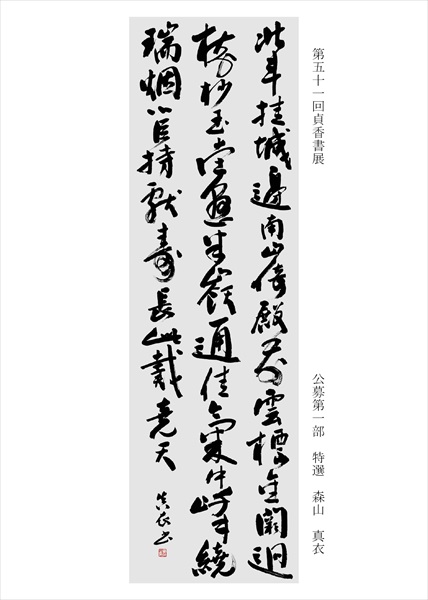 第五十一回貞香書展
公募第一部　特選　森山　真衣
北斗挂城邊南山倚殿前雲標金闕迥
樹杪玉堂懸半嶺通佳氣中峰繞
瑞烟小臣持獻壽長此戴堯天
真衣書